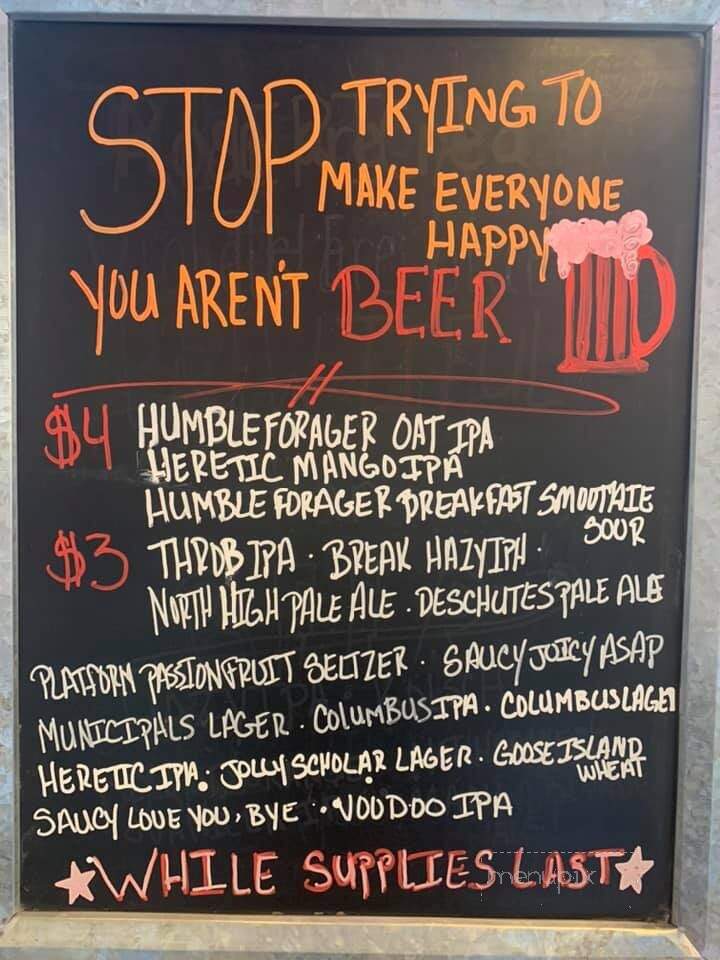 STOP TRYING TO
MAKE EVERYONE
HAPPY
YOU AREN'T BEER
$4 HUMBLE FORAGER OAT IPA
HERETIC MANGO IPA
HUMBLE FORAGER BREAKFAST SMOOTHIE
SOUR
$3 THROB IPA · BREAK HAZY IPA ·
NORTH HIGH PALE ALE . DESCHUTES PALE ALE
PLATFORM PASSIONFRUIT SELTZER · SAUCY JUICY ASAP
MUNICIPALS LAGER . COLUMBUS IPA · COLUMBUS LAGER
HERETIC IPA · JOLLY SCHOLAR LAGER . GOOSE ISLAND
WHEAT
SAUCY LOVE YOU, BYE · VOODOO IPA
WHILE SUPPLIES LAST
menupix